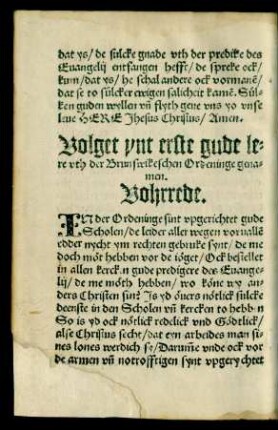 dat ys/ de sülcke gnade vth der predike des
Euangelij entfangen hefft/ de spreke ock/
kum/ dat ys/ he schal andere ock vormanē/
dat se to sülcker ewigen salicheit kamē. Sül-
ken guden wyllen vñ flyth geue vns yo vnse
leue HERE Jhesus Christus/ Amen.
Volget ynt erste gude le-
re vth der Brunswikeschen Ordeninge gena-
men.
Vohrrede.
IN der Ordeninge sint vpgerichtet gude
Scholen/ de leider aller wegen voruallē
edder nycht ym rechten gebruke synt/ de me
doch môt hebben vor de iôget/ Ock bestellet
in allen kerckē gude predigere des Euange-
lij/ de me môth hebben/ wo kône wy an-
ders Christen sin? Js yd ôuers nôtlick sülcke
deenste in den Scholen vñ kercken to hebbē
So is yd ock nôtlick redelick vnd Gôdtlick/
alse Christus secht/ dat eyn arbeides man si-
nes lones werdich se/ Darumē vnde ock vor
de armen vñ notrofftigen synt vpgerychtet